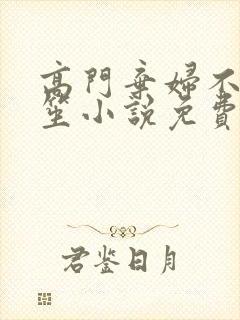 高門棄婦不
笙小說免費
君鉴日月